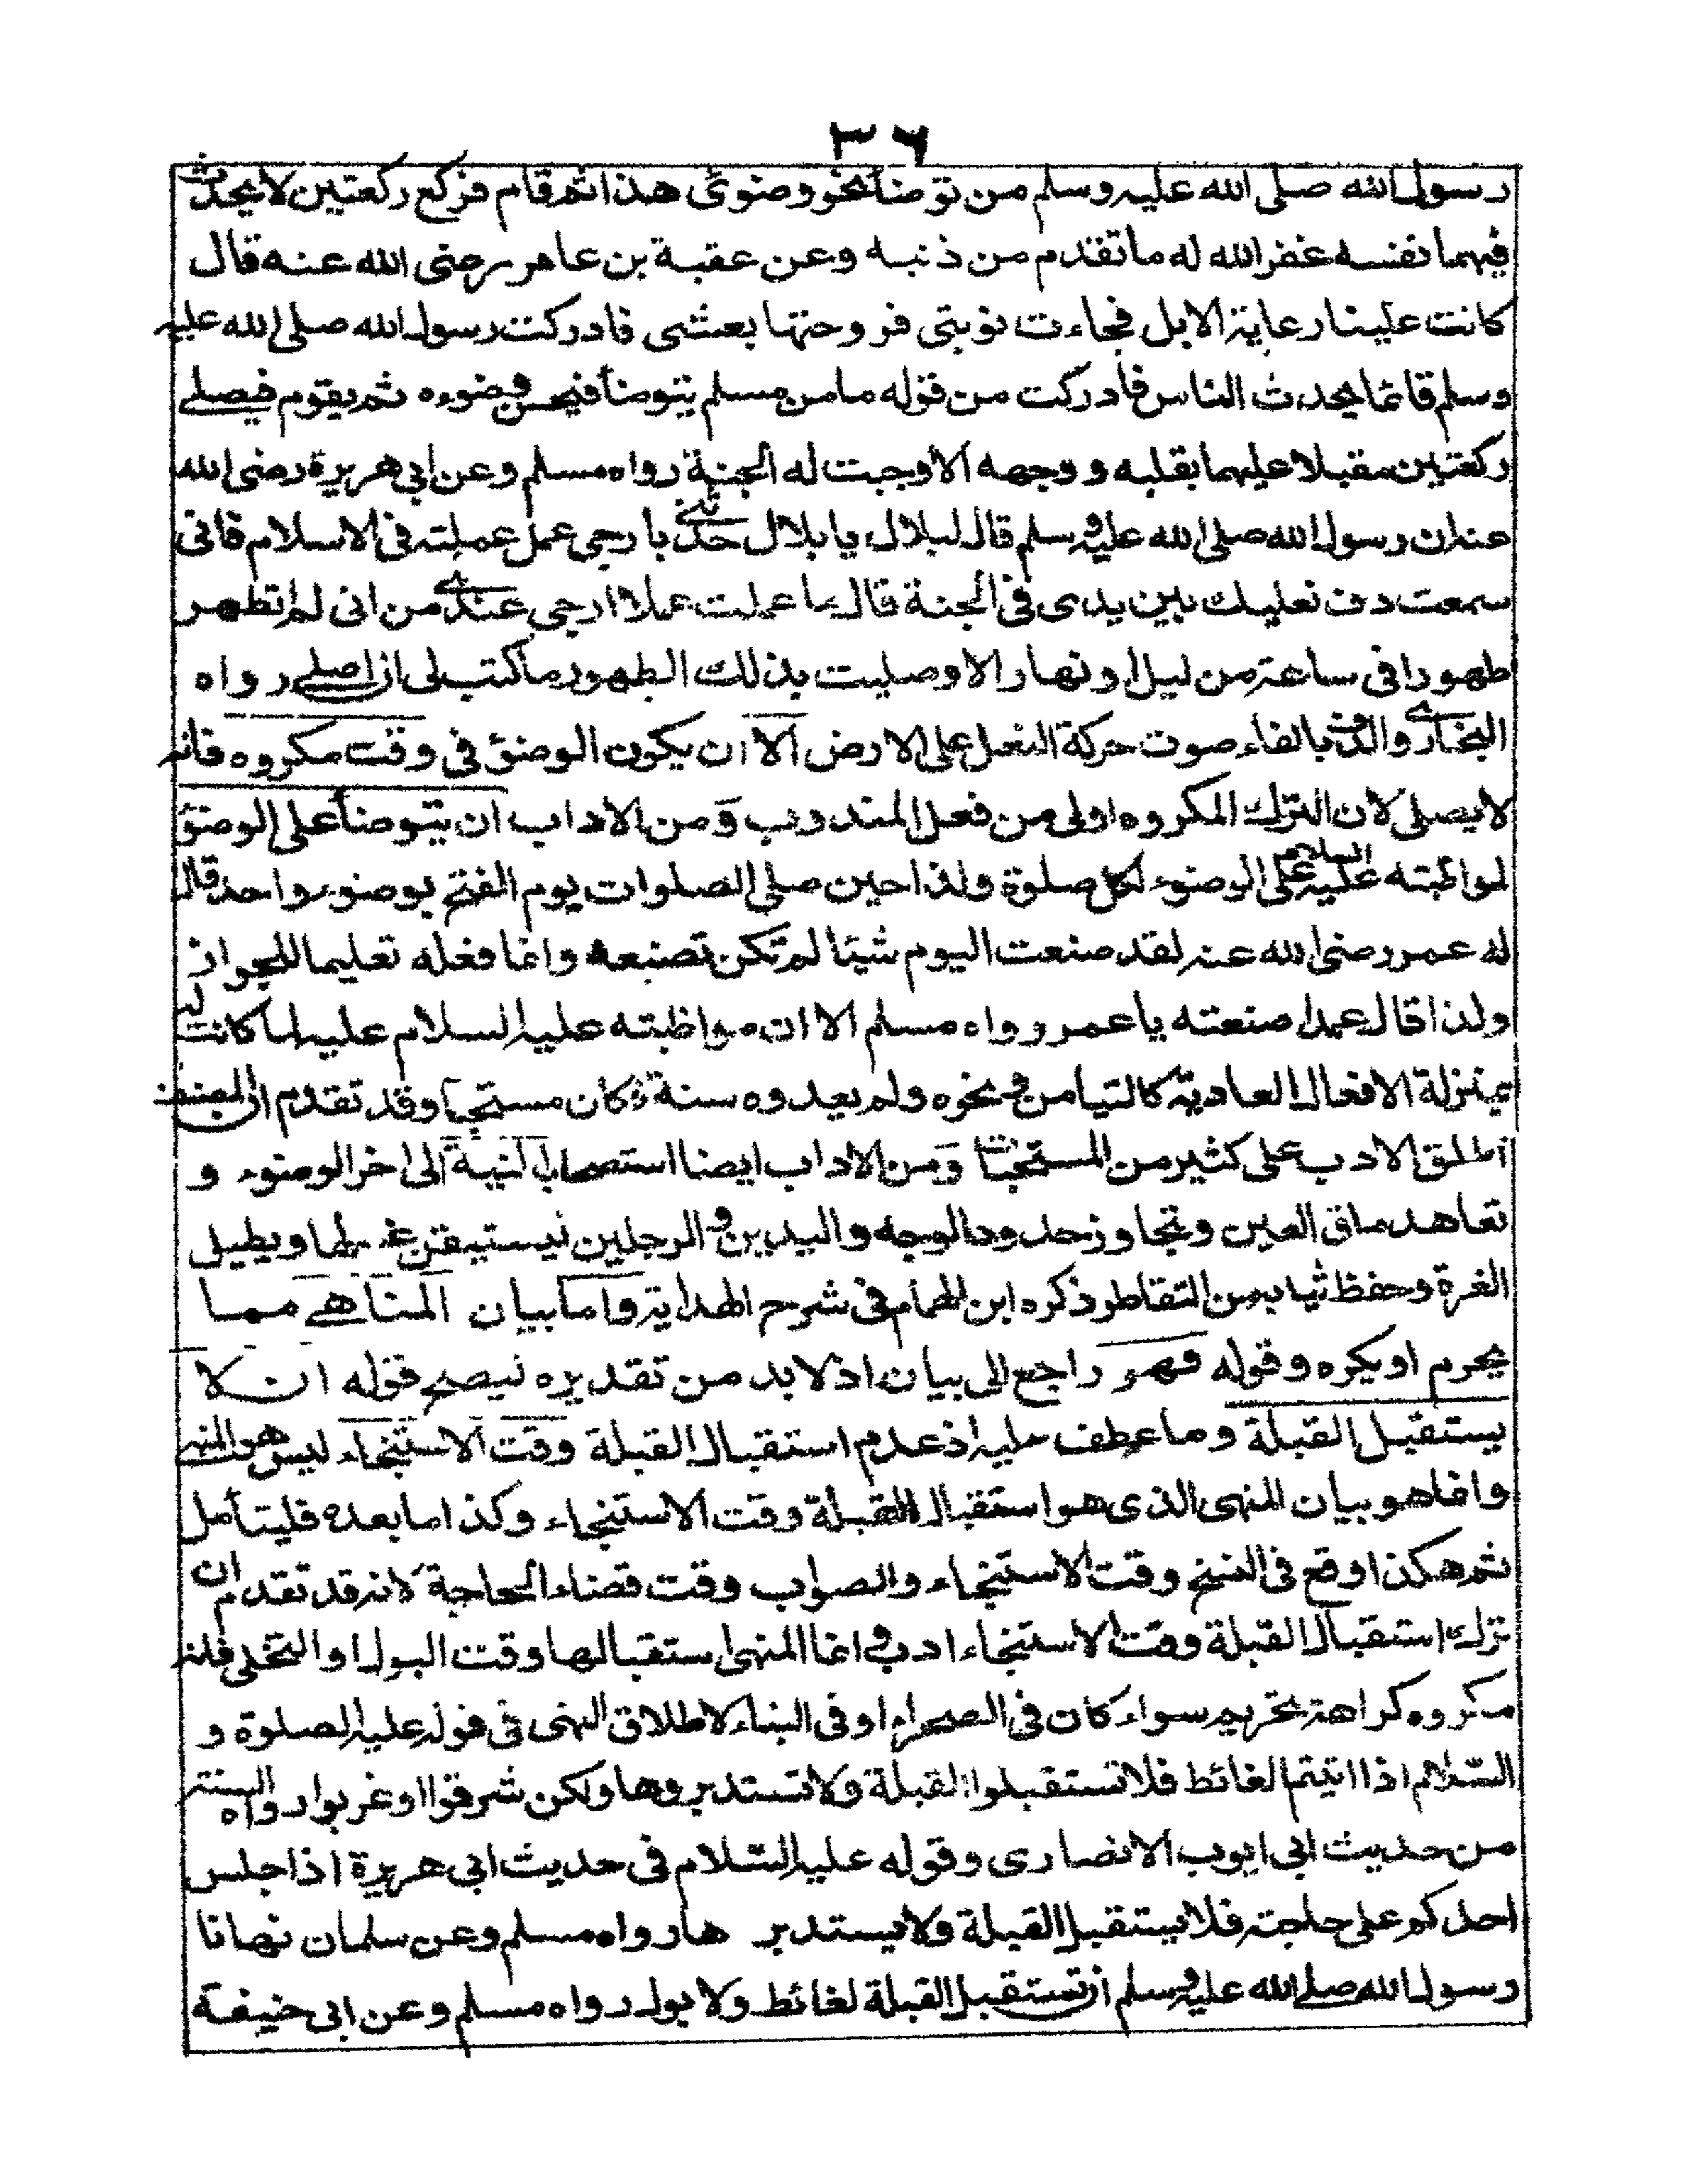 ٣٦
رسول الله صلى الله عليه وسلم من توضأ نحو وضوئى هذا ثم قام فركع ركعتين لا يحدث
فيهما نفسه غفر الله له ما تقدم من ذنبه وعن عقبة بن عامر رضى الله عنه قال
كانت علينا رعاية الابل فجاءت نوبتى فروحتها بعشى فادركت رسول الله صلى الله عليه
وسلم قائما يحدث الناس فأدركت من قوله ما من مسلم يتوضأ فيحسن وضوءه ثم يقوم فيصلے
ركعتين مقبلا عليهما بقلبه ووجهه الا وجبت له الجنة رواه مسلم وعن ابى هريرة رضى الله
عنه ان رسول الله صلى الله عليه وسلم قال لبلال يا بلال حدثنى بأرجى عمل عملته فى الاسلام فانى
سمعت دف نعليك بين يدى فى الجنة قال ما عملت عملا ارجى عندى من انى لم اتطهر
طهورا فى ساعة من ليل او نهار الا وصليت بذلك الطهور ما كتب لى ان اصلے رواه
البخارى والدف بالفاء صوت حركة النعل على الارض الا ان يكون الوضؤ فى وقت مكروه فانه
لا يصلى لان الترك المكروه اولى من فعل المندوب ومن الاداب ان يتوضأ على الوضؤ
لمواظبته عليه السلام على الوضوء لكل صلوة ولذا حين صلى الصلوات يوم الفتح بوضوء واحد قال
له عمر رضى الله عنه لقد صنعت اليوم شيئا لم تكن تصنعه وانما فعله تعليما للجواز
ولذا قال عمدا صنعته يا عمر رواه مسلم الا ان مواظبته عليه السلام عليه لما كانت له
بمنزلة الافعال العادية كالتيامن ونحوه ولم يعدوه سنة فكان مستحبا وقد تقدم ان المصنف
اطلق الادب على كثير من المستحبات ومن الاداب ايضا استصحاب النية الى اخر الوضوء و
تعاهد ماق العين وتجاوز حدود الوجه واليدين والرجلين ليستيقن غسلها ويطيل
الغرة وحفظ ثيابه من التقاطر ذكره ابن الهمام فى شرح الهداية واما بيان المناهے مما
يحرم او يكره وقوله فهو راجع الى بيان اذ لا بد من تقديره ليصح قوله ان لا
يستقبل القبلة وما عطف عليه اذ عدم استقبال القبلة وقت الاستنجاء ليس هو المنهى
وانما هو بيان المنهى الذى هو استقبال القبلة وقت الاستنجاء وكذا ما بعده فليتأمل
ثم هكذا وقع فى النسخ وقت الاستنجاء والصواب وقت قضاء الحاجة لانه قد تقدم ان
ترك استقبال القبلة وقت الاستنجاء ادب وانما المنهى استقبالها وقت البول او التخلى فانه
مكروه كراهة تحريم سواء كان فى الصحراء او فى البناء لاطلاق النهى فى قوله عليه الصلوة و
السلام اذا اتيتم الغائط فلا تستقبلوا القبلة ولا تستدبروها ولكن شرقوا او غربوا رواه الستة
من حديث ابى ايوب الانصارى وقوله عليه السلام فى حديث ابى هريرة اذا جلس
احدكم على حاجته فلا يستقبل القبلة ولا يستدبر ها رواه مسلم وعن سلمان نهانا
رسول الله صلے الله عليه وسلم ان تستقبل القبلة لغائط ولا بول رواه مسلم وعن ابى حنيفة